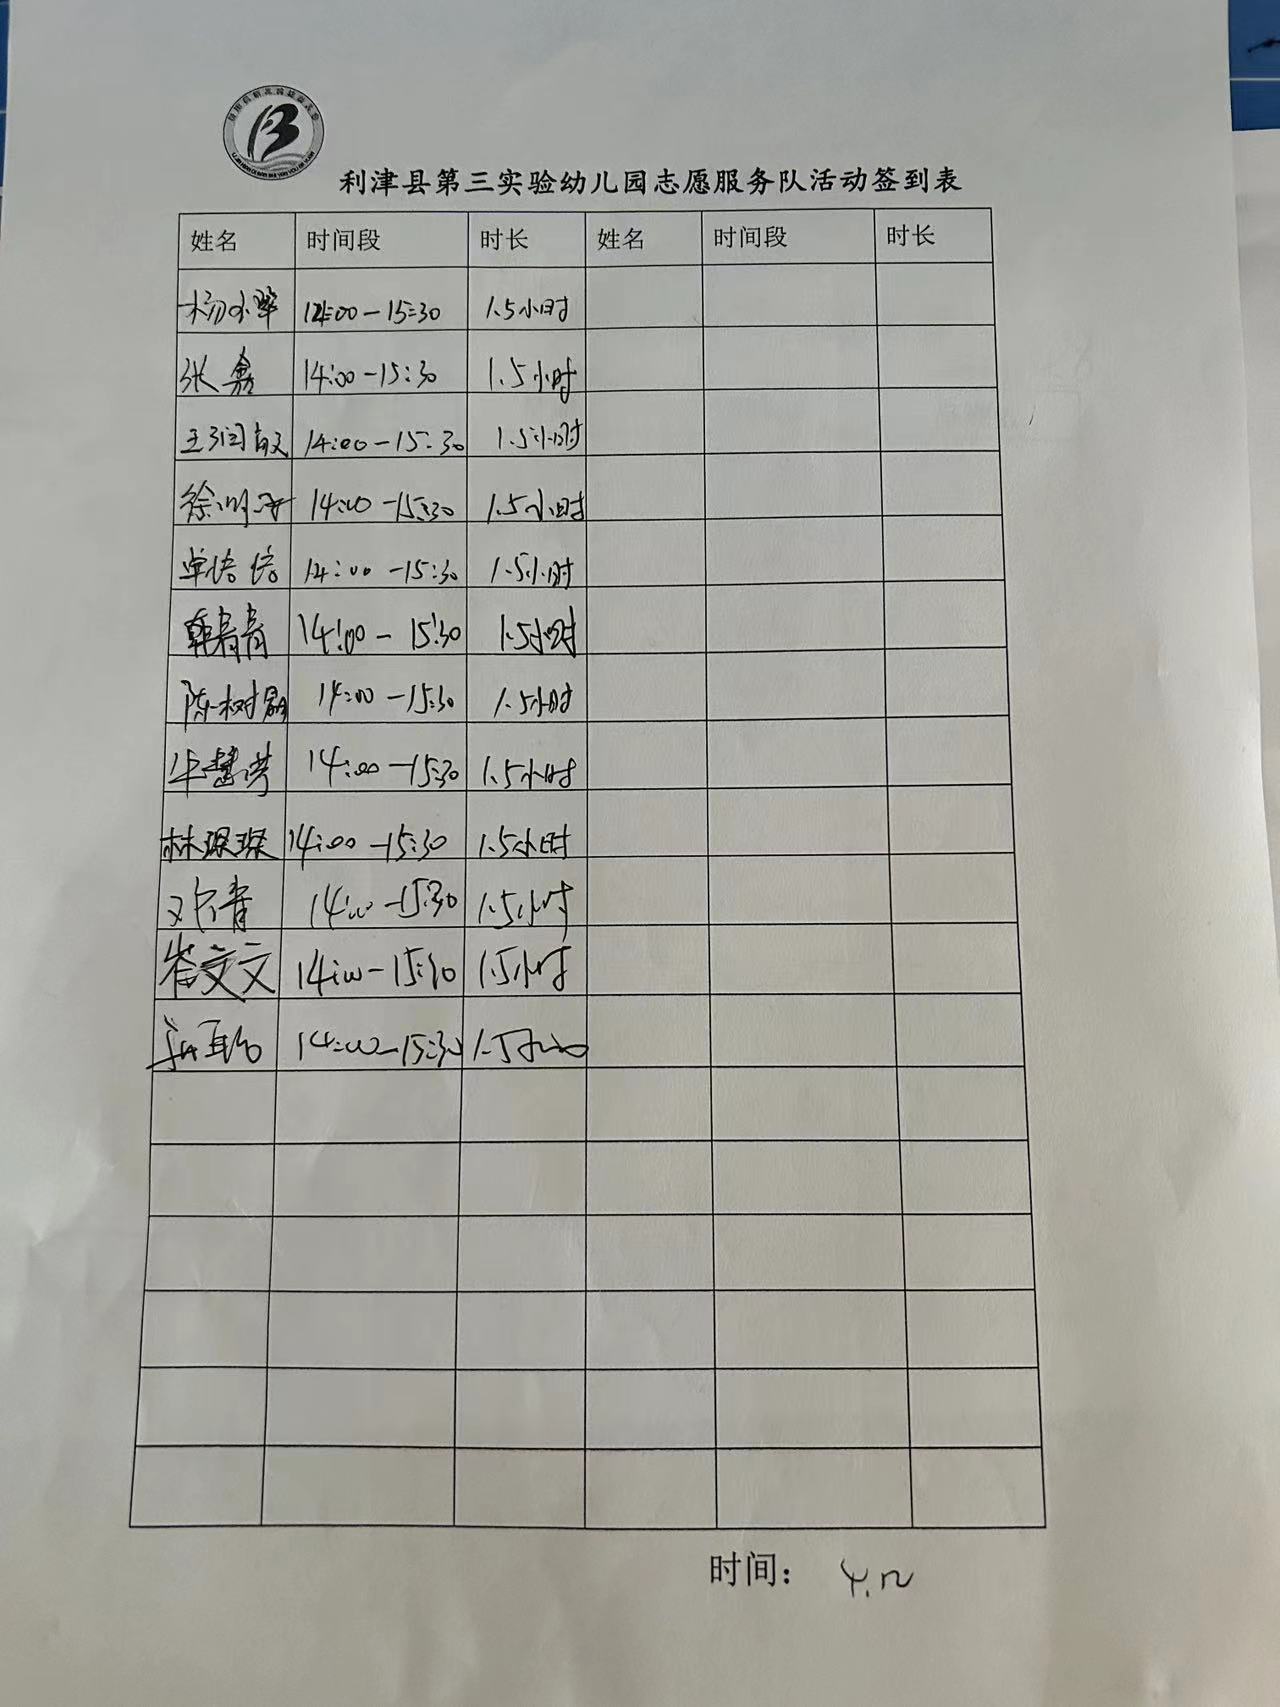 利津县第三实验幼儿园志愿服务队活动签到表
姓名 时间段 时长 姓名 时间段 时长
杨小翠 14:00-15:30 1.5小时
张鑫 14:00-15:30 1.5小时
王闰敏 14:00-15:30 1.5小时
徐明 14:00-15:30 1.5小时
单倍倍 14:00-15:30 1.5小时
韩青青 14:00-15:30 1.5小时
陈树磊 14:00-15:30 1.5小时
毕慧 14:00-15:30 1.5小时
林琛琛 14:00-15:30 1.5小时
青 14:00-15:30 1.5小时
崔文文 14:00-15:30 1.5小时
14:00-15:30 1.5
时间：